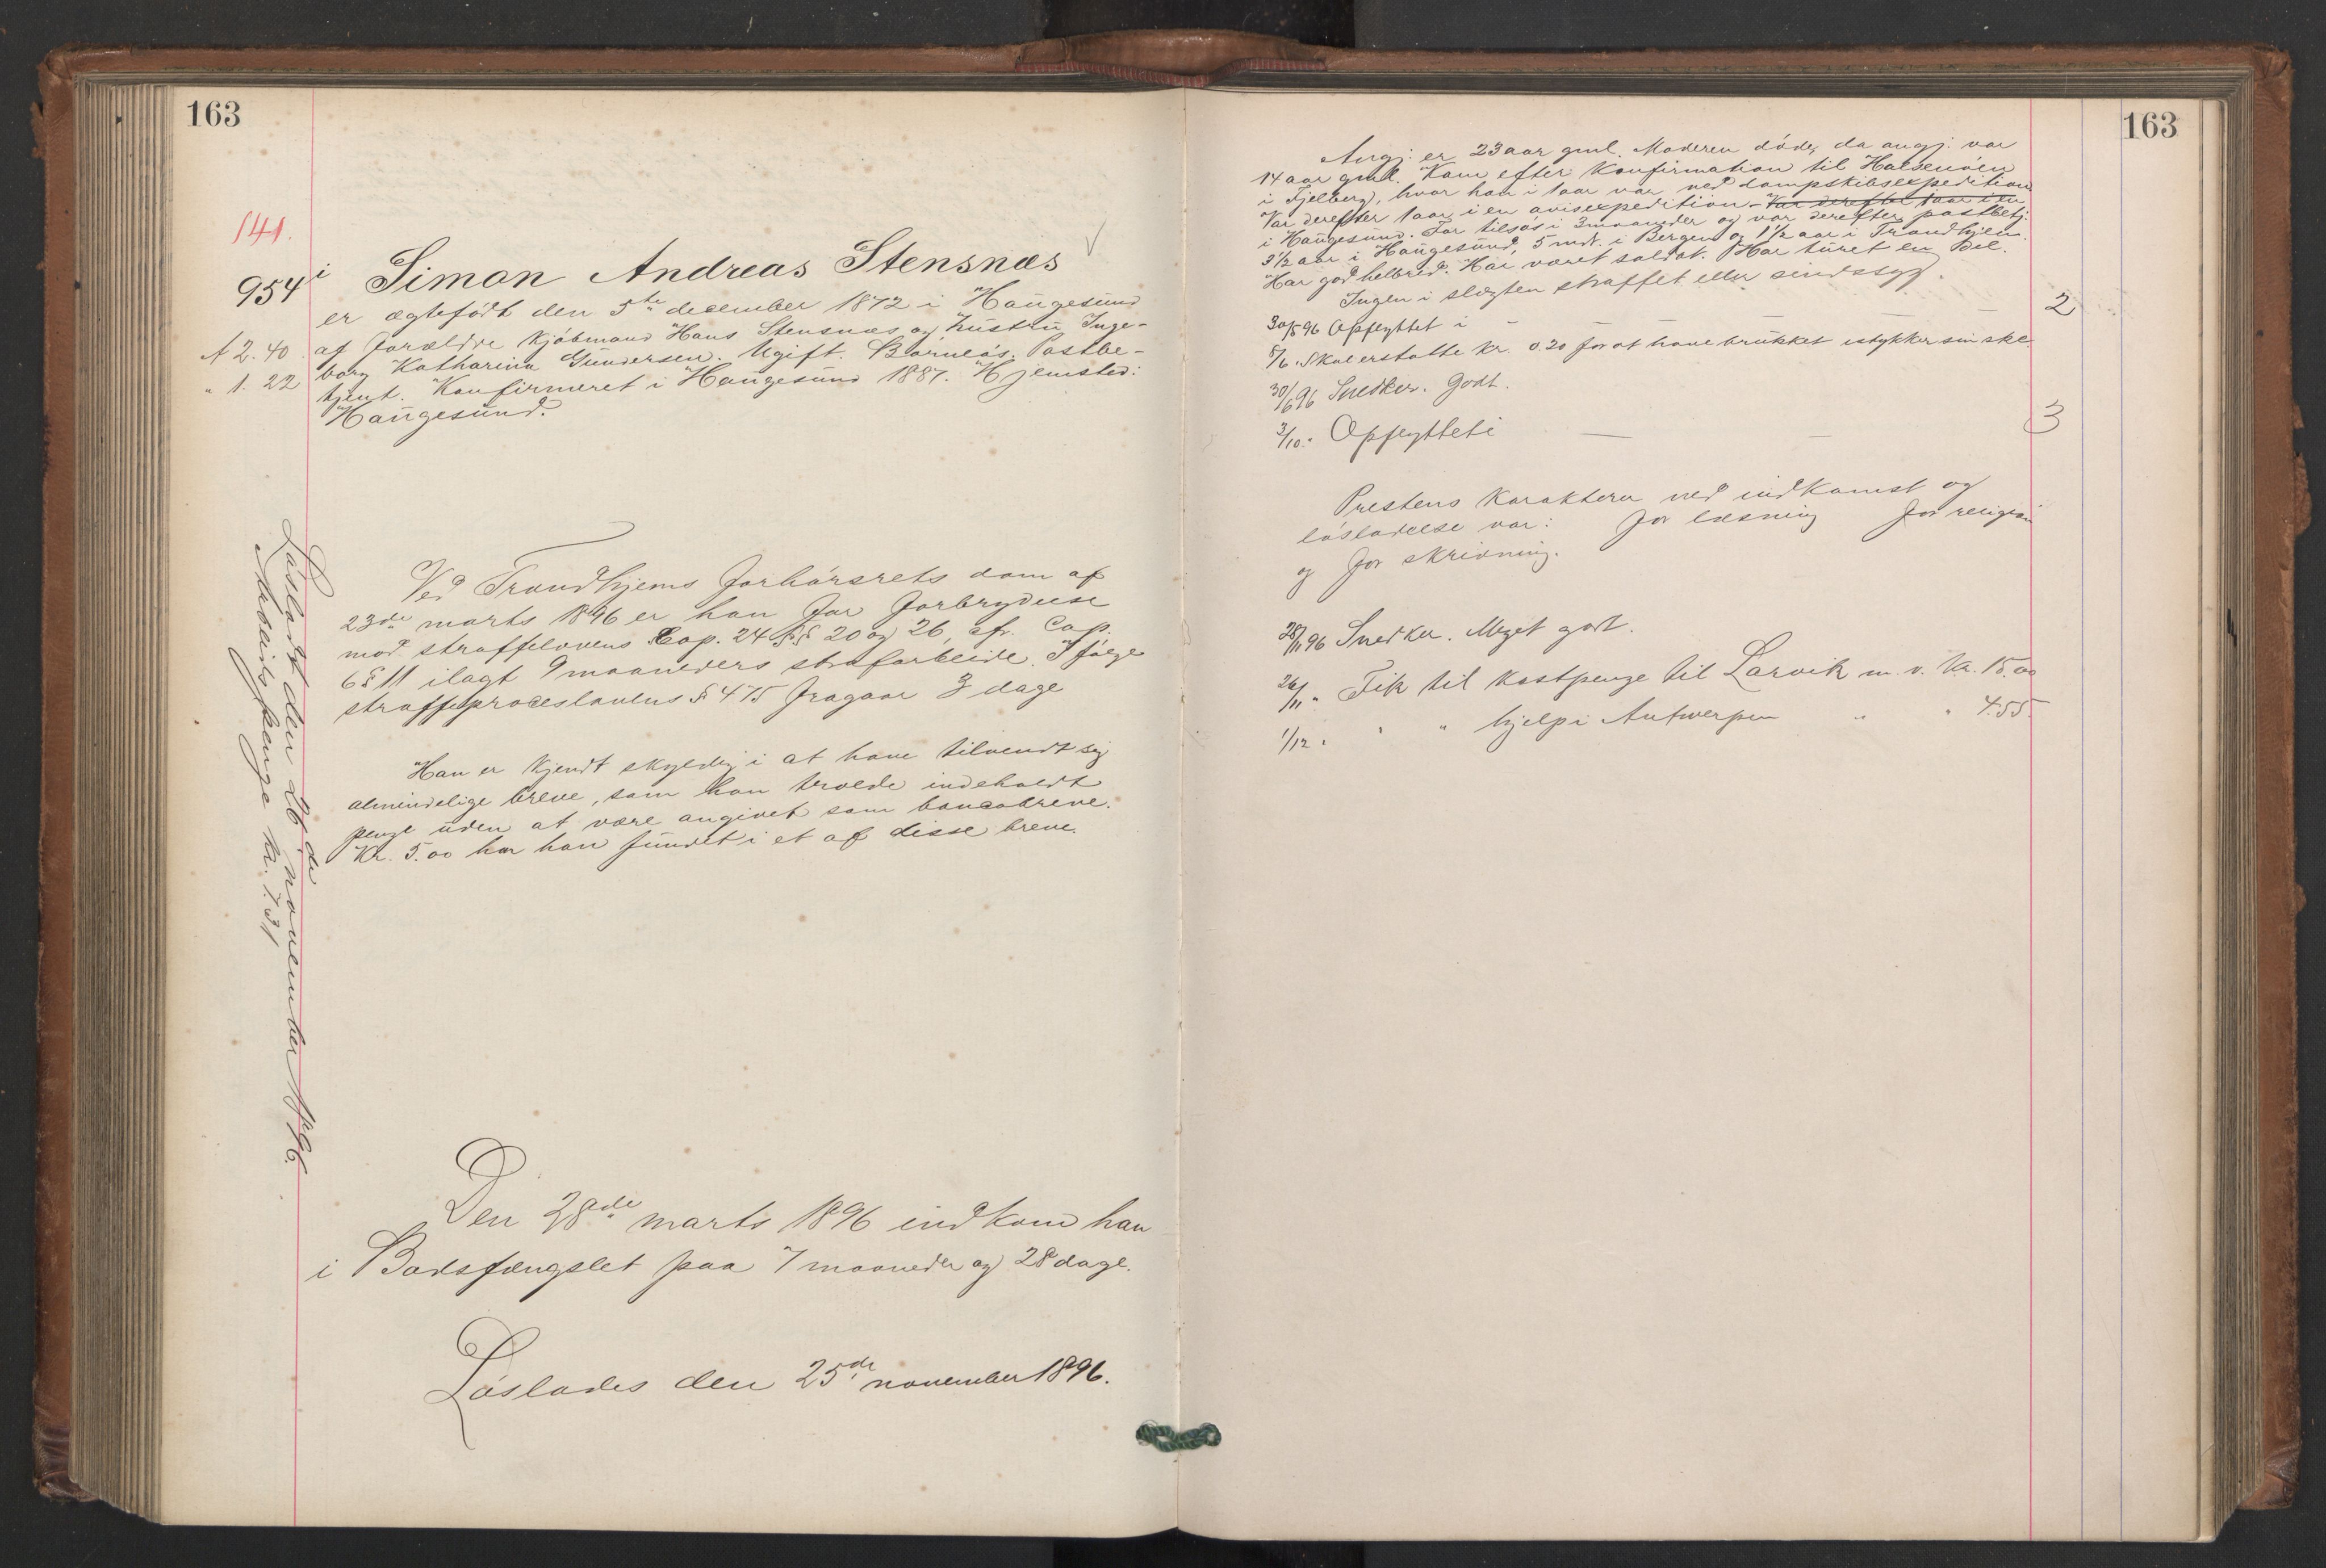 163
141.
954 i Simon Andreas Stensnæs
er ægtefödt den 5te december 1872 i Haugesund
A 2.40. af forældre kjöbmand Hans Stensnæs og hustru Inge-
" 1.22 borg Katharina Gundersen. Ugift. Barnlös. Postbe-
tjent. Konfirmeret i Haugesund 1887. Hjemsted:
Haugesund.
Ved Trondhjems forhörsrets dom af
23de marts 1896 er han for forbrydelse
mod straffelovens Cap. 24 §§ 20 og 26, cfr. Cap.
6 § 11 ilagt 9 maaneders strafarbeide. Ifölge
straffeproceslovens § 475 fragaar 3 dage
Han er kjendt skyldig i at have tilvendt sig
almindelige breve, som han troede indeholdt
penge uden at være angivet som bancobreve.
Kr. 5.00 har han fundet i et af disse breve.
Den 28de marts 1896 indkom han
i Bodsfængslet paa 7 maaneder og 28 dage.
Löslades den 25de november 1896.
Lösladt den 26de november 1896.
Arbeidspenge kr. 7.31
163
Angj. er 23 aar gml. Moderen döde, da angj. var
14 aar gml. Kom efter konfirmation til Halsenöen
i Fjelberg, hvor han i 1 aar var ved dampskibsexpedition
Var derefter 1 aar i en avisexpedition - Var derefter 1 aar i en
i Haugesund. Før tilsös i 3 maaneder og var derefter postbetj.
3 1/2 aar i Haugesund, 5 mdr. i Bergen og 1 1/2 aar i Trondhjem.
Har god helbred. Har været soldat. Har turet en Del.
Ingen i slægten straffet eller sindssyg.
30/5 96 Opflyttet i — — — — 2
8/6 " Skal erstatte kr. 0.20 for at have brukket istykker sin ske.
30/6 96 Snedker. Godt.
3/10 " Opflyttet i — — 3
Prestens karakterer ved indkomst og
lösladelse var: for læsning for religion
og for skrivning.
28/11 96 Snedker. Meget godt.
26/11 " Fik til kostpenge til Larvik m. v. kr. 15.00
1/12 " " " hjelp i Antwerpen " " 4.55.